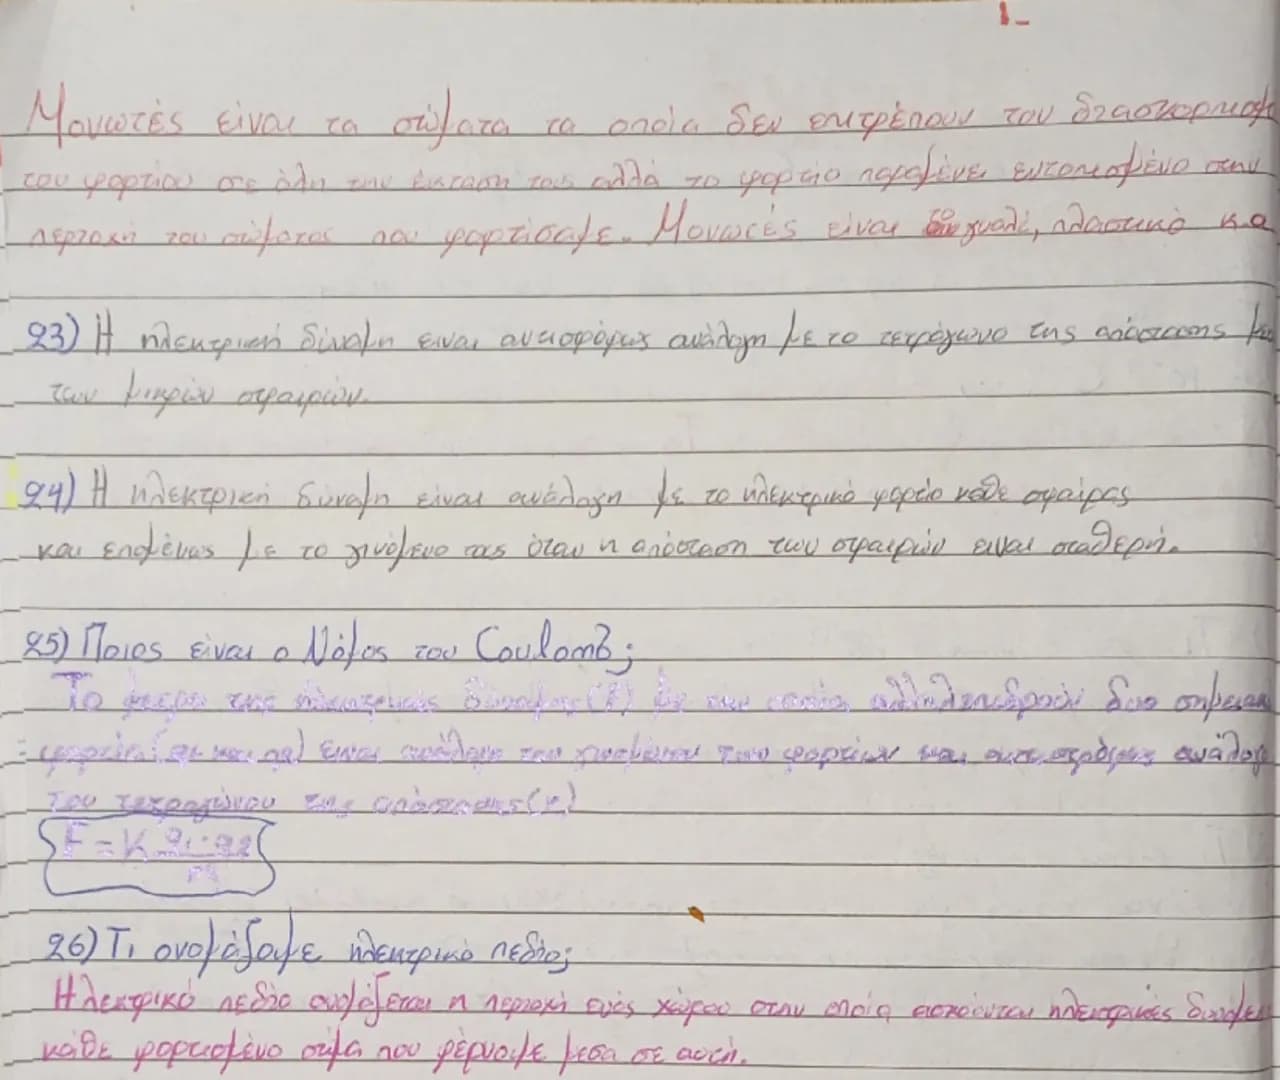 1-
Μονωτές είναι τα σώματα τα οποία δεν επιτρέπουν τον διασκορπισμό
του φορτίου σε όλη την έκταση τους αλλά το φορτίο παραμένει εντοπισμένο στην
περιοχή του σώματος που φορτίσαμε. Μονωτές είναι το γυαλί, πλαστικό κ.α
23) Η ηλεκτρική δύναμη ειναι αντιστρόφως ανάλογη με το τετράγωνο της απόστασης
των μικρών σφαιρών.
24) Η ηλεκτρική δύναμη είναι ανάλογη με το ηλεκτρικό φορτίο κάθε σφαίρας
και επομένως με το γινόμενο τους όταν η απόσταση των σφαιρών ειναι σταθερή.
25) Ποιος είναι ο Νόμος του Coulomb;
Το μετρο της ηλεκτρικής δύναμης (F) με την οποία αλληλεπιδρούν δυο σημειακα
φορτία (q1 και q2) ειναι ανάλογο του γινομένου των φορτίων και αντιστρόφως ανάλογο
του τετραγώνου της απόστασης (r)
F = K q1·q2
r2
26) Τι ονομάζουμε ηλεκτρικό πεδίο;
Ηλεκτρικό πεδίο ονομάζεται η περιοχή ενός χώρου στην οποία ασκούνται ηλεκτρικές δυνάμεις
κάθε φορτισμένο σώμα που φέρνουμε μεσα σε αυτή.